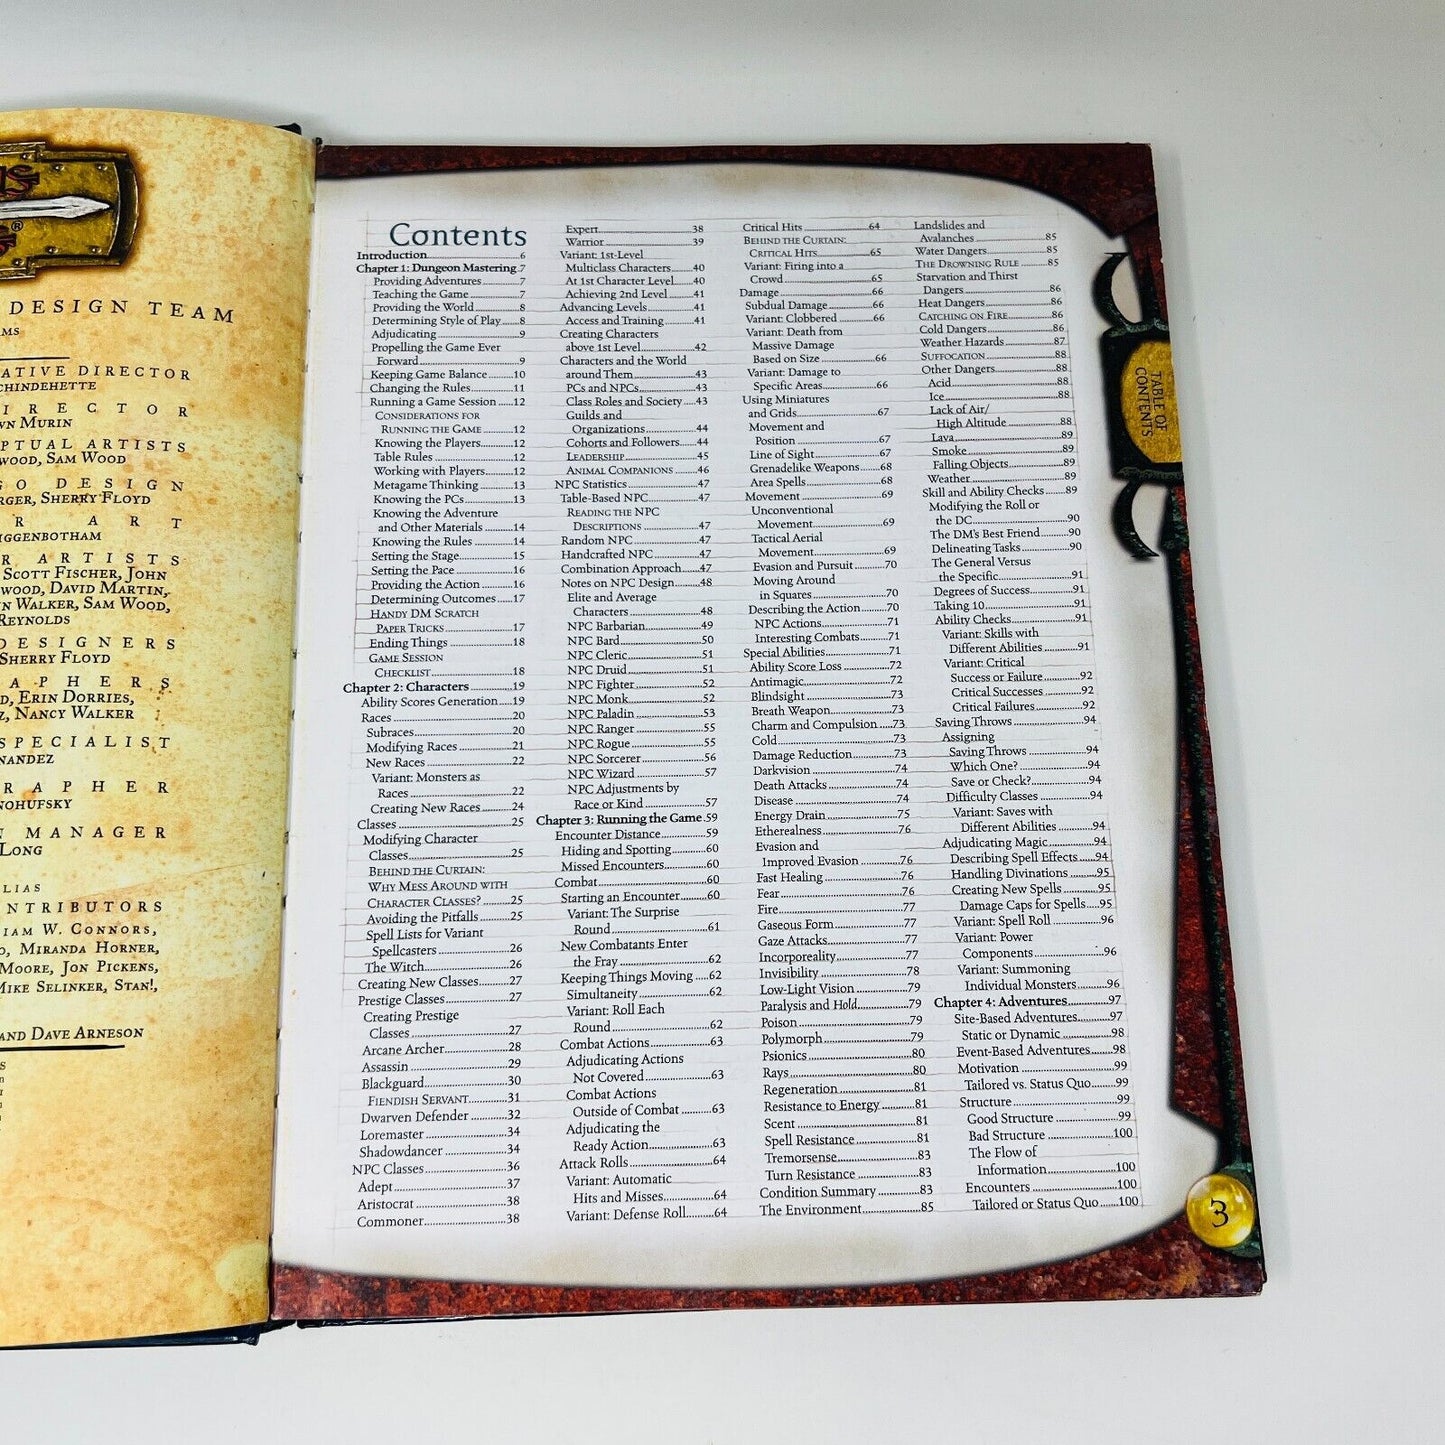 DESIGN TEAM
AMS
ATIVE DIRECTOR
CHINDEHETTE
IRECTOR
WN MURIN
PTUAL ARTISTS
WOOD, SAM WOOD
GO DESIGN
RGER, SHERRY FLOYD
R ART
IGGENBOTHAM
R ARTISTS
SCOTT FISCHER, JOHN
WOOD, DAVID MARTIN,
N WALKER, SAM WOOD,
REYNOLDS
DESIGNERS
SHERRY FLOYD
APHERS
D, ERIN DORRIES,
Z, NANCY WALKER
SPECIALIST
NANDEZ
RAPHER
NOHUFSKY
N MANAGER
LONG
LIAS
ONTRIBUTORS
IAM W. CONNORS,
O, MIRANDA HORNER,
MOORE, JON PICKENS,
MIKE SELINKER, STAN!,
AND DAVE ARNESON
Contents
Introduction 6
Chapter 1: Dungeon Mastering 7
Providing Adventures 7
Teaching the Game 7
Providing the World 8
Determining Style of Play 8
Adjudicating 9
Propelling the Game Ever
Forward 9
Keeping Game Balance 10
Changing the Rules 11
Running a Game Session 12
CONSIDERATIONS FOR
RUNNING THE GAME 12
Knowing the Players 12
Table Rules 12
Working with Players 12
Metagame Thinking 13
Knowing the PCs 13
Knowing the Adventure
and Other Materials 14
Knowing the Rules 14
Setting the Stage 15
Setting the Pace 16
Providing the Action 16
Determining Outcomes 17
HANDY DM SCRATCH
PAPER TRICKS 17
Ending Things 18
GAME SESSION
CHECKLIST 18
Chapter 2: Characters 19
Ability Scores Generation 19
Races 20
Subraces 20
Modifying Races 21
New Races 22
Variant: Monsters as
Races 22
Creating New Races 24
Classes 25
Modifying Character
Classes 25
BEHIND THE CURTAIN:
WHY MESS AROUND WITH
CHARACTER CLASSES? 25
Avoiding the Pitfalls 25
Spell Lists for Variant
Spellcasters 26
The Witch 26
Creating New Classes 27
Prestige Classes 27
Creating Prestige
Classes 27
Arcane Archer 28
Assassin 29
Blackguard 30
FIENDISH SERVANT 31
Dwarven Defender 32
Loremaster 34
Shadowdancer 34
NPC Classes 36
Adept 37
Aristocrat 38
Commoner 38
Expert 38
Warrior 39
Variant: 1st-Level
Multiclass Characters 40
At 1st Character Level 40
Achieving 2nd Level 41
Advancing Levels 41
Access and Training 41
Creating Characters
above 1st Level 42
Characters and the World
around Them 43
PCs and NPCs 43
Class Roles and Society 43
Guilds and
Organizations 44
Cohorts and Followers 44
LEADERSHIP 45
ANIMAL COMPANIONS 46
NPC Statistics 47
Table-Based NPC 47
READING THE NPC
DESCRIPTIONS 47
Random NPC 47
Handcrafted NPC 47
Combination Approach 47
Notes on NPC Design 48
Elite and Average
Characters 48
NPC Barbarian 49
NPC Bard 50
NPC Cleric 51
NPC Druid 51
NPC Fighter 52
NPC Monk 52
NPC Paladin 53
NPC Ranger 55
NPC Rogue 55
NPC Sorcerer 56
NPC Wizard 57
NPC Adjustments by
Race or Kind 57
Chapter 3: Running the Game 59
Encounter Distance 59
Hiding and Spotting 60
Missed Encounters 60
Combat 60
Starting an Encounter 60
Variant: The Surprise
Round 61
New Combatants Enter
the Fray 62
Keeping Things Moving 62
Simultaneity 62
Variant: Roll Each
Round 62
Combat Actions 63
Adjudicating Actions
Not Covered 63
Combat Actions
Outside of Combat 63
Adjudicating the
Ready Action 63
Attack Rolls 64
Variant: Automatic
Hits and Misses 64
Variant: Defense Roll 64
Critical Hits 64
BEHIND THE CURTAIN:
CRITICAL HITS 65
Variant: Firing into a
Crowd 65
Damage 66
Subdual Damage 66
Variant: Clobbered 66
Variant: Death from
Massive Damage
Based on Size 66
Variant: Damage to
Specific Areas 66
Using Miniatures
and Grids 67
Movement and
Position 67
Line of Sight 67
Grenadelike Weapons 68
Area Spells 68
Movement 69
Unconventional
Movement 69
Tactical Aerial
Movement 69
Evasion and Pursuit 70
Moving Around
in Squares 70
Describing the Action 70
NPC Actions 71
Interesting Combats 71
Special Abilities 71
Ability Score Loss 72
Antimagic 72
Blindsight 73
Breath Weapon 73
Charm and Compulsion 73
Cold 73
Damage Reduction 73
Darkvision 74
Death Attacks 74
Disease 74
Energy Drain 75
Etherealness 76
Evasion and
Improved Evasion 76
Fast Healing 76
Fear 76
Fire 77
Gaseous Form 77
Gaze Attacks 77
Incorporeality 77
Invisibility 78
Low-Light Vision 79
Paralysis and Hold 79
Poison 79
Polymorph 79
Psionics 80
Rays 80
Regeneration 81
Resistance to Energy 81
Scent 81
Spell Resistance 81
Tremorsense 83
Turn Resistance 83
Condition Summary 83
The Environment 85
Landslides and
Avalanches 85
Water Dangers 85
THE DROWNING RULE 85
Starvation and Thirst
Dangers 86
Heat Dangers 86
CATCHING ON FIRE 86
Cold Dangers 86
Weather Hazards 87
SUFFOCATION 88
Other Dangers 88
Acid 88
Ice 88
Lack of Air/
High Altitude 88
Lava 89
Smoke 89
Falling Objects 89
Weather 89
Skill and Ability Checks 89
Modifying the Roll or
the DC 90
The DM's Best Friend 90
Delineating Tasks 90
The General Versus
the Specific 91
Degrees of Success 91
Taking 10 91
Ability Checks 91
Variant: Skills with
Different Abilities 91
Variant: Critical
Success or Failure 92
Critical Successes 92
Critical Failures 92
Saving Throws 94
Assigning
Saving Throws 94
Which One? 94
Save or Check? 94
Difficulty Classes 94
Variant: Saves with
Different Abilities 94
Adjudicating Magic 94
Describing Spell Effects 94
Handling Divinations 95
Creating New Spells 95
Damage Caps for Spells 95
Variant: Spell Roll 96
Variant: Power
Components 96
Variant: Summoning
Individual Monsters 96
Chapter 4: Adventures 97
Site-Based Adventures 97
Static or Dynamic 98
Event-Based Adventures 98
Motivation 99
Tailored vs. Status Quo 99
Structure 99
Good Structure 99
Bad Structure 100
The Flow of
Information 100
Encounters 100
Tailored or Status Quo 100
TABLE OF
CONTENTS
3